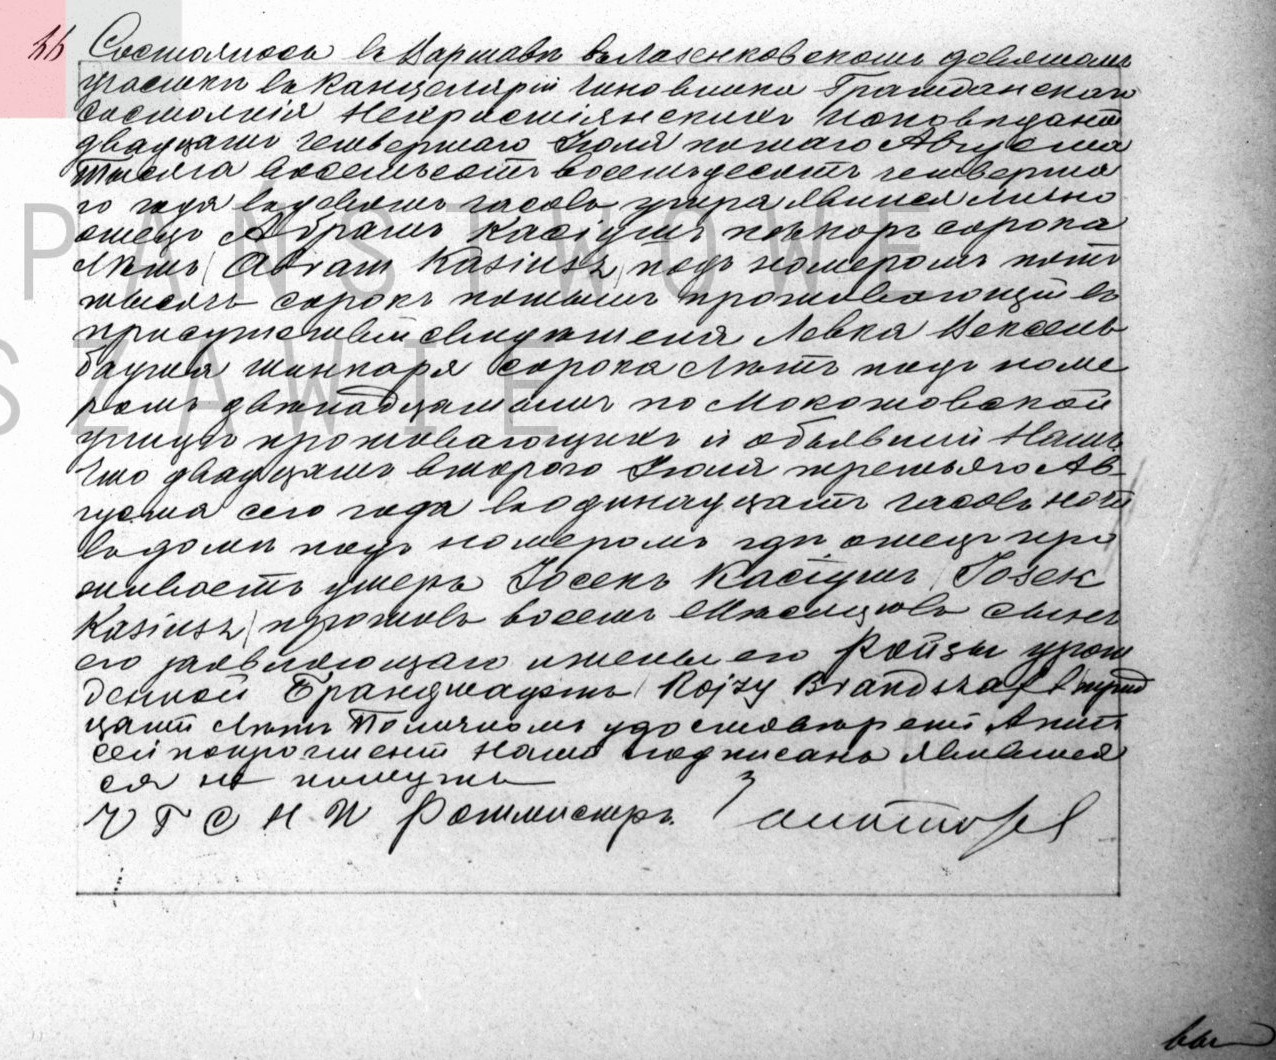 Состоялось въ Варшавѣ въ Лазенковскомъ девятомъ
участкѣ въ Канцеляріи Чиновника Гражданскаго
состоянія Нехристіянскихъ Исповѣданій
двадцать четвертаго Іюля пятаго Августа
тысяча восемьсотъ восемьдесятъ четверта
го года въ девять часовъ утра явился лично
отецъ Абрамъ Касіушъ пѣкарь сорока
лѣтъ (Abram Kasiusz) подъ номеромъ пять
тысячъ сорокъ пятымъ проживающій въ
присутствіи свидѣтеля Левка Вексель
баума шинкаря сорока лѣтъ подъ номе
ромъ двѣнадцатымъ по Мокотовской
улицѣ проживающихъ и объявили Намъ
что двадцать втораго Іюля третьяго Ав
густа сего года въ одинадцать часовъ ночи
въ домѣ подъ номеромъ гдѣ отецъ про
живаетъ умеръ Іосекъ Касіушъ (Josek
Kasiusz) проживъ восемь мѣсяцовъ сынъ
его заявляющаго и жены его Ройзы урож
денной Брандшафтъ (Rojzy Brandszaft)
цати лѣтъ По личномъ удостовѣреніи Актъ
сей по прочтеніи Нами подписанъ явившія
ся не
Ч Г С Н И Ротмистръ